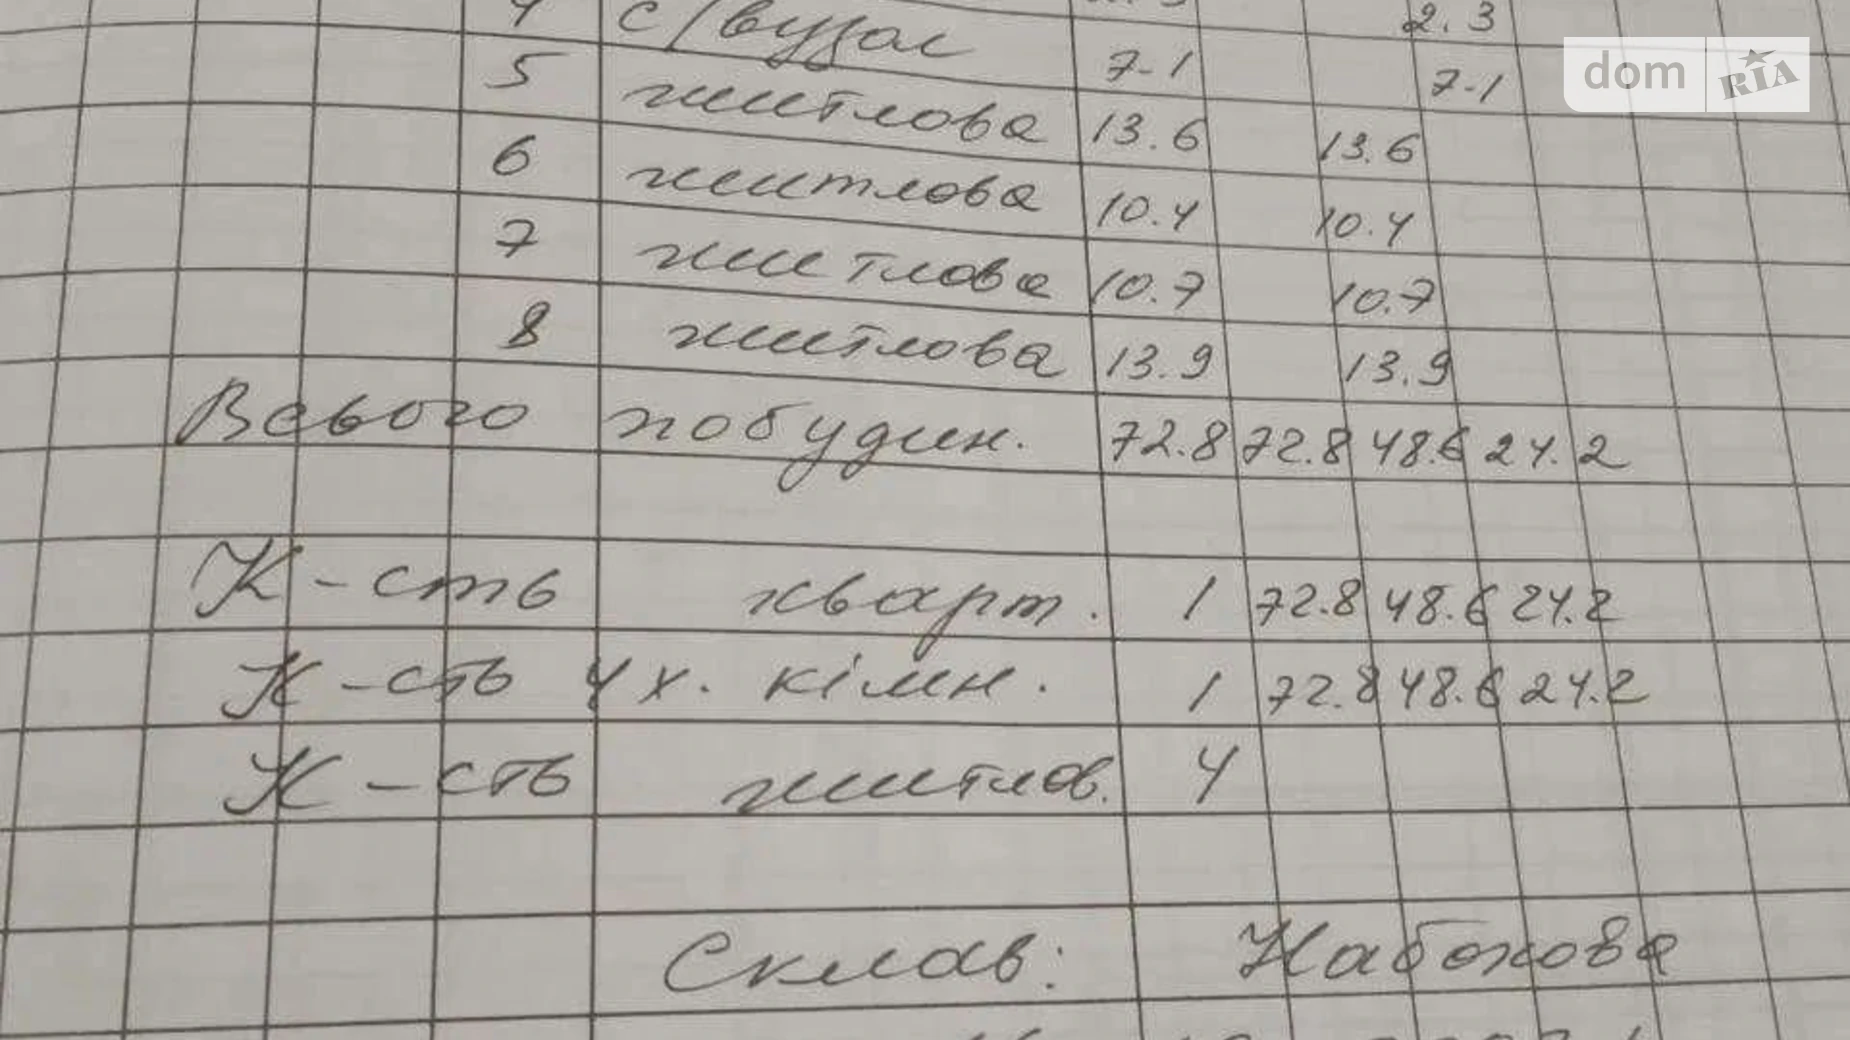 2.3
dom RIA
4 с/вузол 7.1 7.1
5 житлова 13.6 13.6
6 житлова 10.4 10.4
7 житлова 10.7 10.7
8 житлова 13.9 13.9
Всього по будин. 72.8 72.8 48.6 24.2
К-сть кварт. 1 72.8 48.6 24.2
К-сть 4х. кімн. 1 72.8 48.6 24.2
К-сть житлов. 4
Склав: Набокова